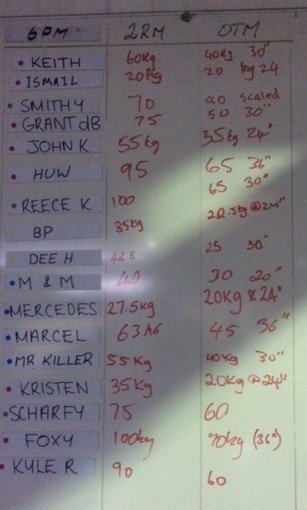 6PM 2RM OTM
KEITH 60kg 40kg 30"
ISMAIL 20kg 20 kg 24
SMITHY 70 40 scaled
GRANT dB 75 50 30"
JOHN K 55kg 35kg 24"
HUW 95 65 36"
65 30"
REECE K 100 22.5kg @ 24"
BP 35kg
DEE H 42.5 25 30"
M & M 40 30 20"
MERCEDES 27.5kg 20kg & 24"
MARCEL 63 45 36"
MR KILLER 55kg 40kg 30"
KRISTEN 35kg 20kg @ 24"
SCHARFY 75 60
FOXY 100kg 70kg (36")
KYLE R 90 60